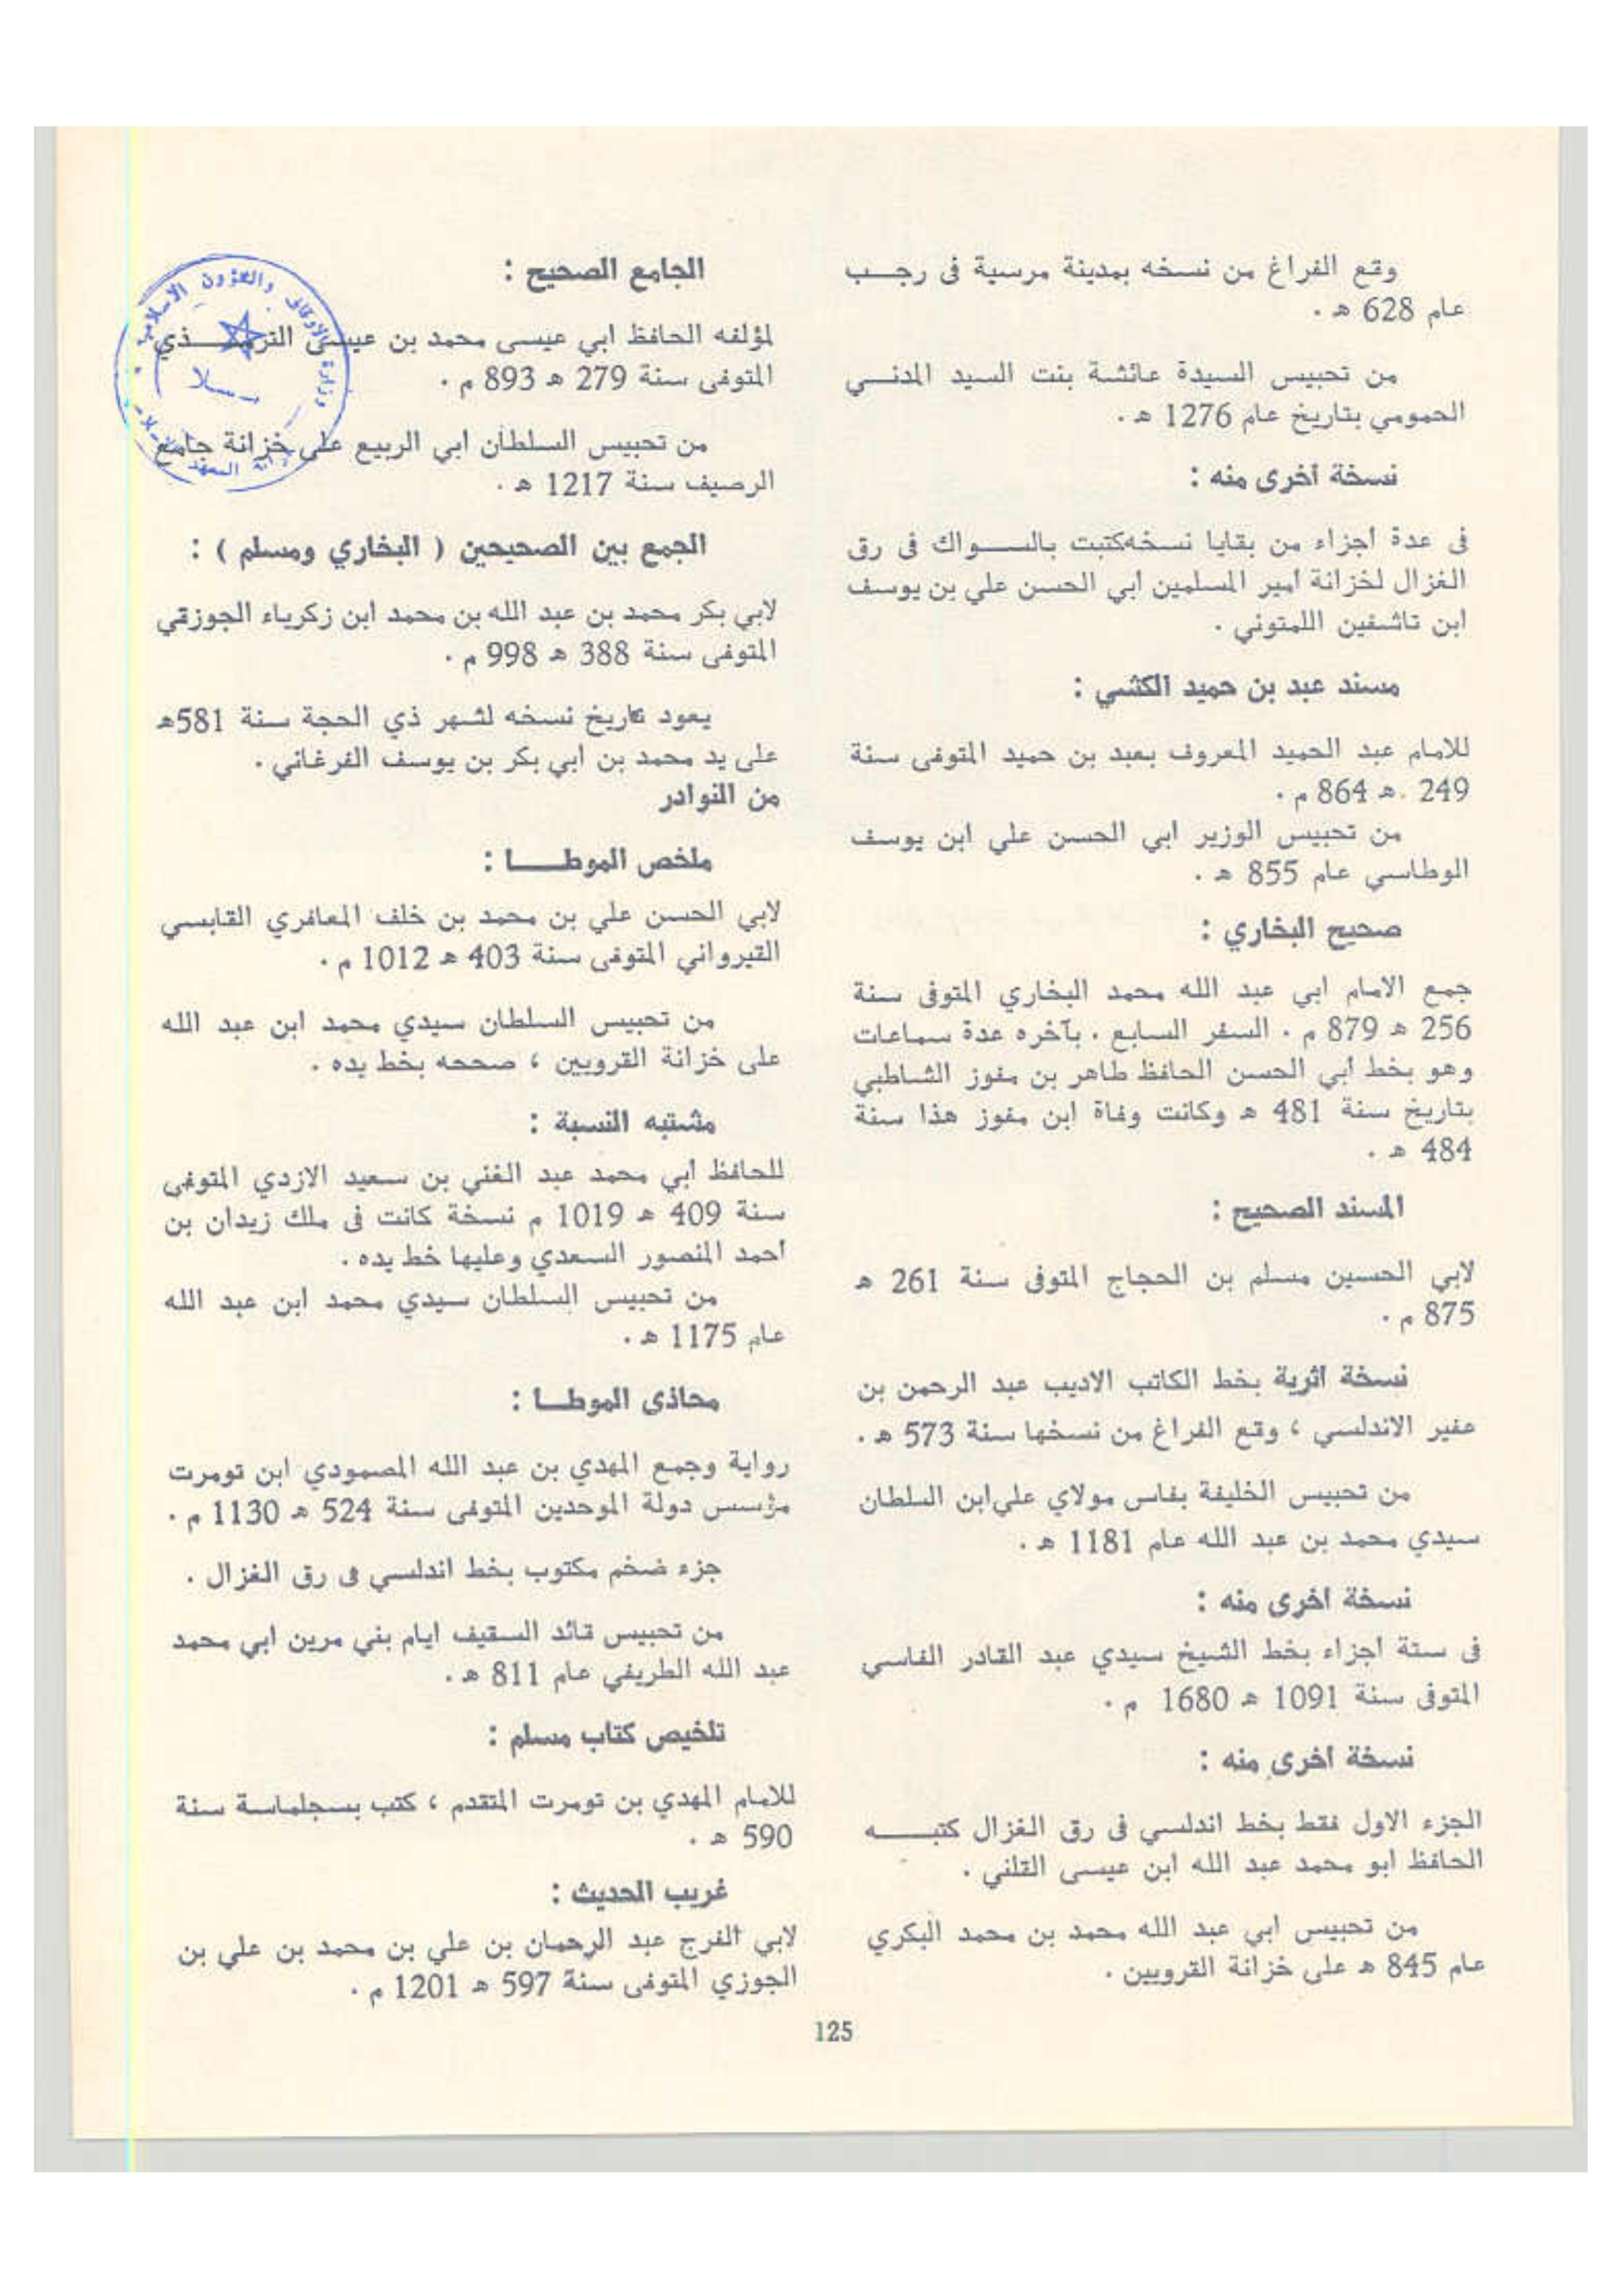 وقع الفراغ من نسخه بمدينة مرسية فى رجــب
عام 628 هـ .
من تحبيس السيدة عائشة بنت السيد المدنــي
الحمومي بتاريخ عام 1276 هـ .
نسخة أخرى منه :
فى عدة أجزاء من بقايا نسخه كتبت بالســـواك فى رق
الغزال لخزانة أمير المسلمين أبي الحسن علي بن يوسف
ابن تاشفين اللمتوني .
مسند عبد بن حميد الكشي :
للامام عبد الحميد المعروف بعبد بن حميد المتوفى سنة
249 هـ 864 م .
من تحبيس الوزير ابي الحسن علي ابن يوسف
الوطاسي عام 855 هـ .
صحيح البخاري :
جمع الامام ابي عبد الله محمد البخاري المتوفى سنة
256 هـ 879 م . السفر السابع . بآخره عدة سماعات
وهو بخط أبي الحسن الحافظ طاهر بن مفوز الشاطبي
بتاريخ سنة 481 هـ وكانت وفاة ابن مفوز هذا سنة
484 هـ .
المسند الصحيح :
لابي الحسين مسلم بن الحجاج المتوفى سنة 261 هـ
875 م .
نسخة أثرية بخط الكاتب الاديب عبد الرحمن بن
عفير الاندلسي ، وقع الفراغ من نسخها سنة 573 هـ .
من تحبيس الخليفة بفاس مولاي علي ابن السلطان
سيدي محمد بن عبد الله عام 1181 هـ .
نسخة أخرى منه :
فى ستة أجزاء بخط الشيخ سيدي عبد القادر الفاسي
المتوفى سنة 1091 هـ 1680 م .
نسخة أخرى منه :
الجزء الاول فقط بخط اندلسي فى رق الغزال كتبــــه
الحافظ ابو محمد عبد الله ابن عيسى القلني .
من تحبيس ابي عبد الله محمد بن محمد البكري
عام 845 هـ على خزانة القرويين .
الجامع الصحيح :
لمؤلفه الحافظ ابي عيسى محمد بن عيسى الترمـــذي
المتوفى سنة 279 هـ 893 م .
من تحبيس السلطان ابي الربيع على خزانة جامع
الرصيف سنة 1217 هـ .
الجمع بين الصحيحين ( البخاري ومسلم ) :
لابي بكر محمد بن عبد الله بن محمد ابن زكرياء الجوزقي
المتوفى سنة 388 هـ 998 م .
يعود تاريخ نسخه لشهر ذي الحجة سنة 581هـ
على يد محمد بن ابي بكر بن يوسف الفرغاني .
من النوادر
ملخص الموطـــا :
لابي الحسن علي بن محمد بن خلف المعافري القابسي
القيرواني المتوفى سنة 403 هـ 1012 م .
من تحبيس السلطان سيدي محمد ابن عبد الله
على خزانة القرويين ، صححه بخط يده .
مشتبه النسبة :
للحافظ أبي محمد عبد الغني بن سعيد الازدي المتوفى
سنة 409 هـ 1019 م نسخة كانت فى ملك زيدان بن
أحمد المنصور السعدي وعليها خط يده .
من تحبيس السلطان سيدي محمد ابن عبد الله
عام 1175 هـ .
محاذى الموطــا :
رواية وجمع المهدي بن عبد الله المصمودي ابن تومرت
مؤسس دولة الموحدين المتوفى سنة 524 هـ 1130 م .
جزء ضخم مكتوب بخط اندلسي فى رق الغزال .
من تحبيس قائد السقيف ايام بني مرين ابي محمد
عبد الله الطريفي عام 811 هـ .
تلخيص كتاب مسلم :
للامام المهدي بن تومرت المتقدم ، كتب بسجلماسة سنة
590 هـ .
غريب الحديث :
لابي الفرج عبد الرحمان بن علي بن محمد بن علي بن
الجوزي المتوفى سنة 597 هـ 1201 م .
125
وزارة الأوقاف والشؤون الاسلامية
سلا